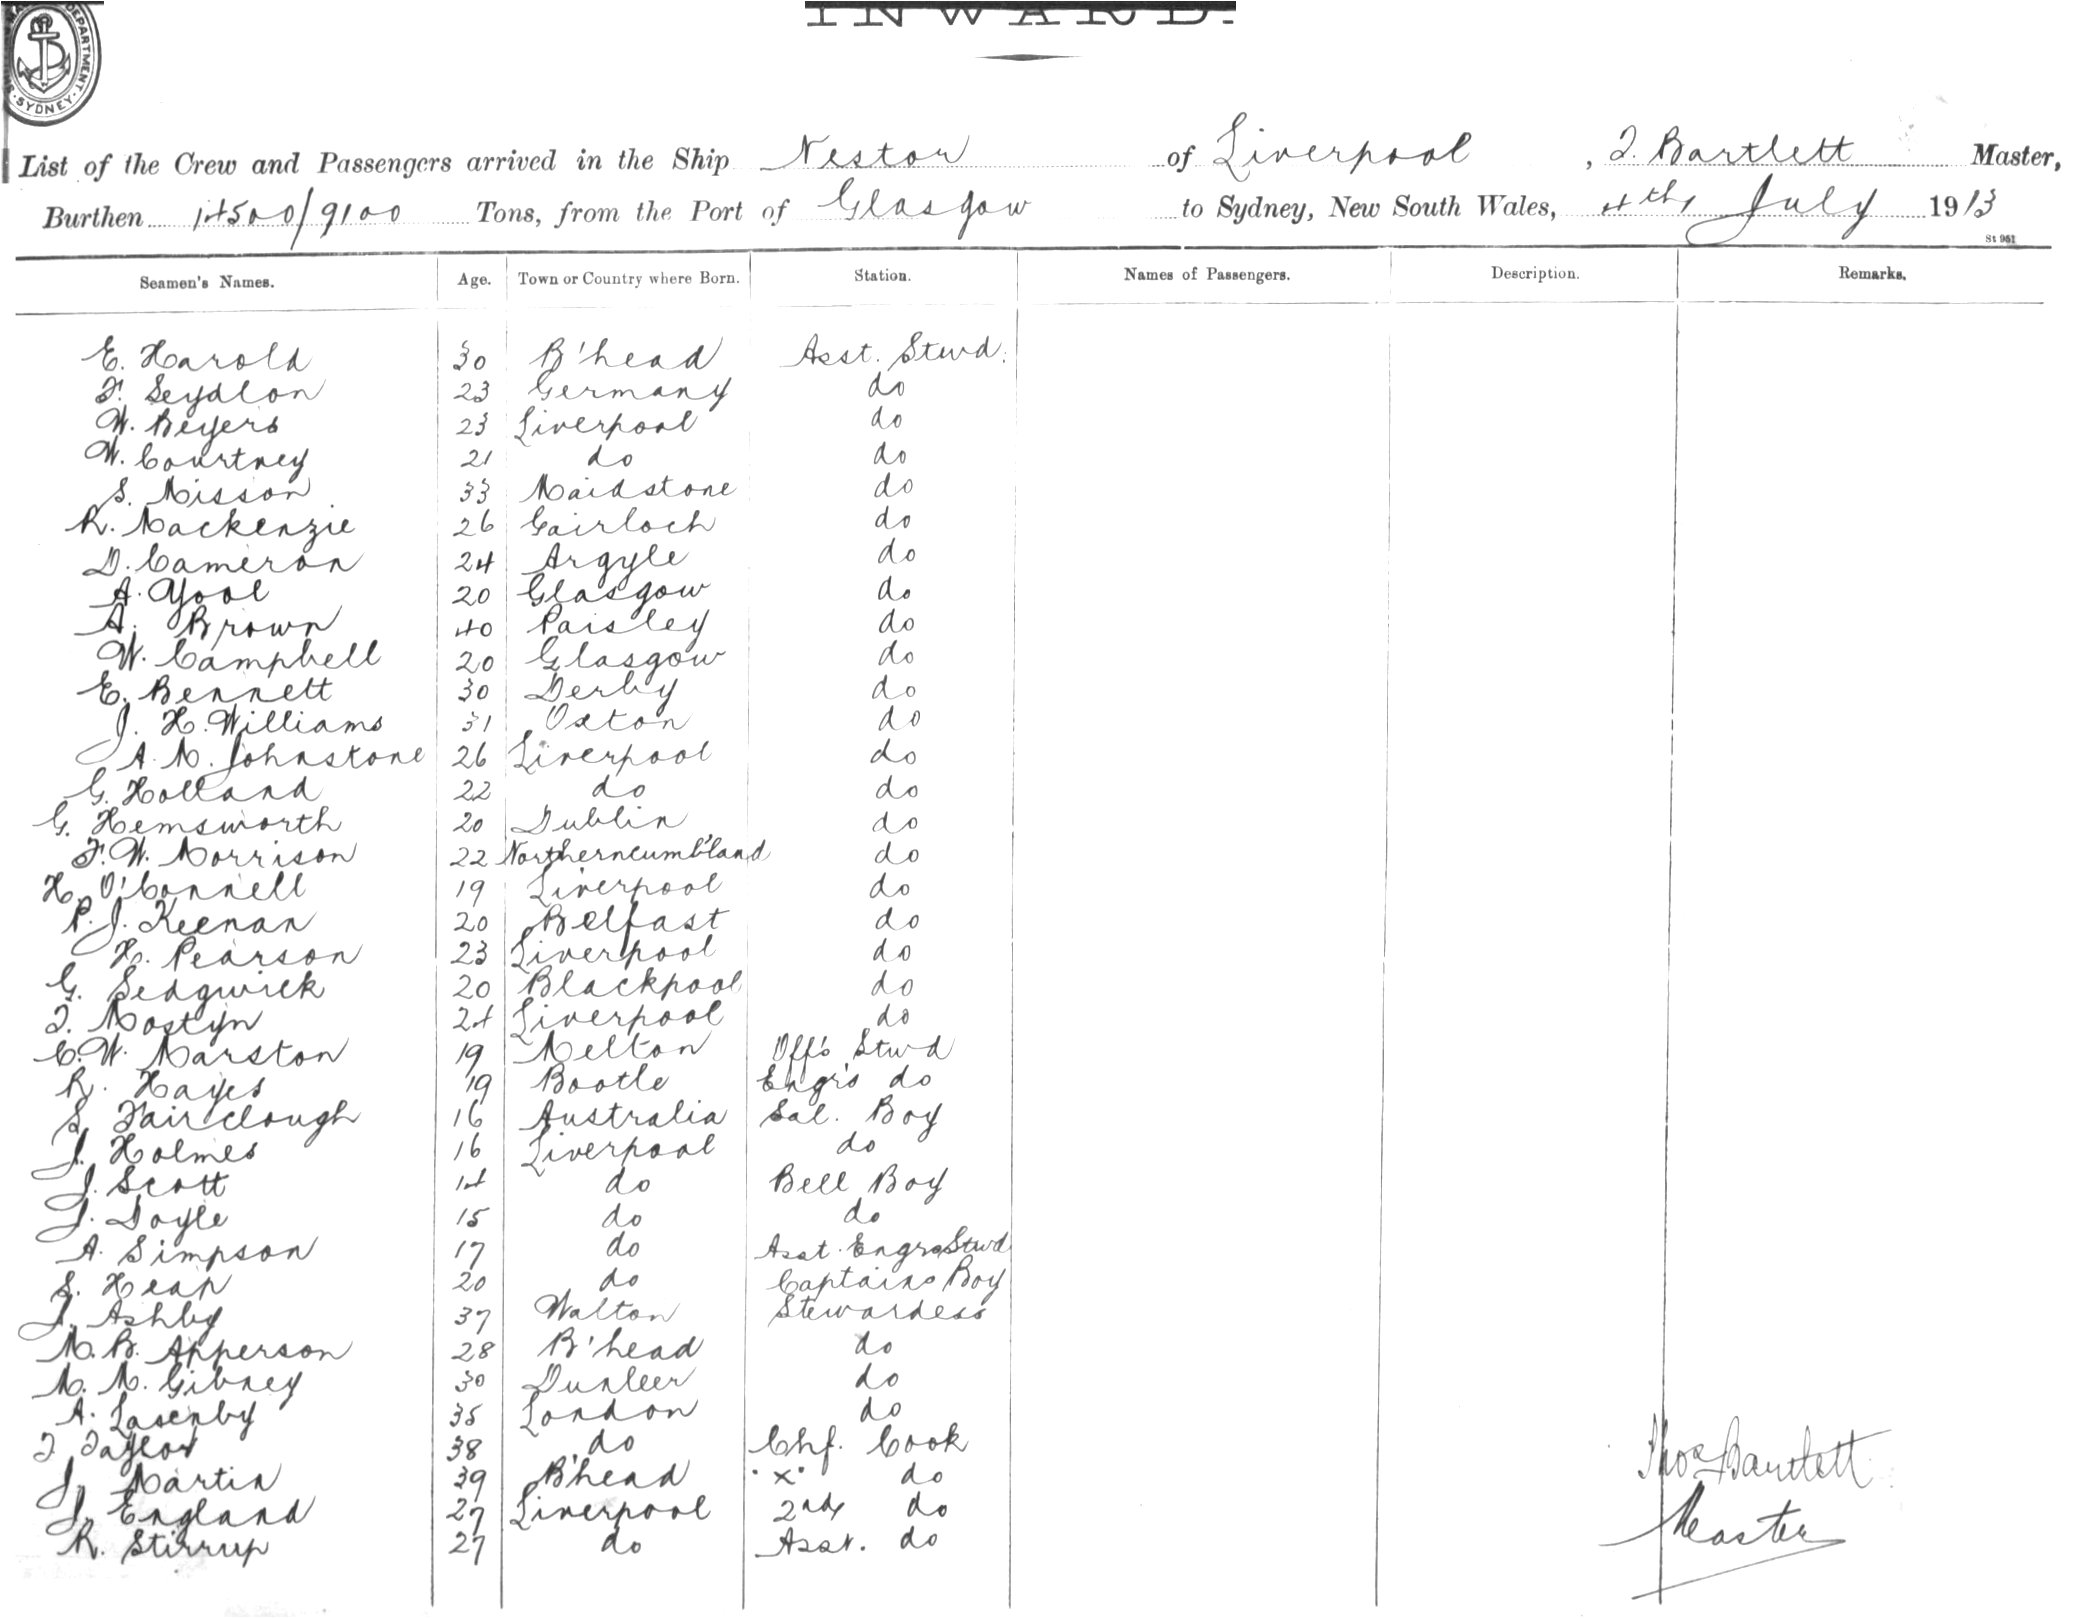 INWARD.
DEPARTMENT
SYDNEY
List of the Crew and Passengers arrived in the Ship Nestor of Liverpool, T. Bartlett Master,
Burthen 14500/9100 Tons, from the Port of Glasgow to Sydney, New South Wales, 4th July 1913
St 951
Seamen's Names. Age. Town or Country where Born. Station. Names of Passengers. Description. Remarks.
E. Harold 30 B'head Asst. Stwd.
F. Seydlon 23 Germany do
W. Beyers 23 Liverpool do
W. Courtney 21 do do
S. Misson 33 Maidstone do
R. Mackenzie 26 Gairloch do
D. Cameron 24 Argyle do
A. Yool 20 Glasgow do
A. Brown 40 Paisley do
W. Campbell 20 Glasgow do
E. Bennett 30 Derby do
J. H. Williams 31 Oxton do
A. M. Johnstone 26 Liverpool do
G. Holland 22 do do
G. Hemsworth 20 Dublin do
F. W. Morrison 22 Northerncumb'land do
H. O'Connell 19 Liverpool do
P. J. Keenan 20 Belfast do
H. Pearson 23 Liverpool do
G. Sedgwick 20 Blackpool do
T. Mostyn 24 Liverpool do
C. W. Marston 19 Melton Off's Stwd
R. Hayes 19 Bootle Engr's do
S. Fairclough 16 Australia Sal. Boy
J. Holmes 16 Liverpool do
J. Scott 14 do Bell Boy
J. Doyle 15 do do
A. Simpson 17 do Asst. Engrs Stwd
S. Heap 20 do Captains Boy
J. Ashby 37 Walton Stewardess
M. B. Apperson 28 B'head do
M. M. Gibney 30 Dunleer do
A. Lasenby 35 London do
T Taylor 38 do Chf. Cook
J. Martin 39 B'head "x" do
J. England 27 Liverpool 2nd do
R. Stirrup 27 do Asst. do
Thos Bartlett
Master